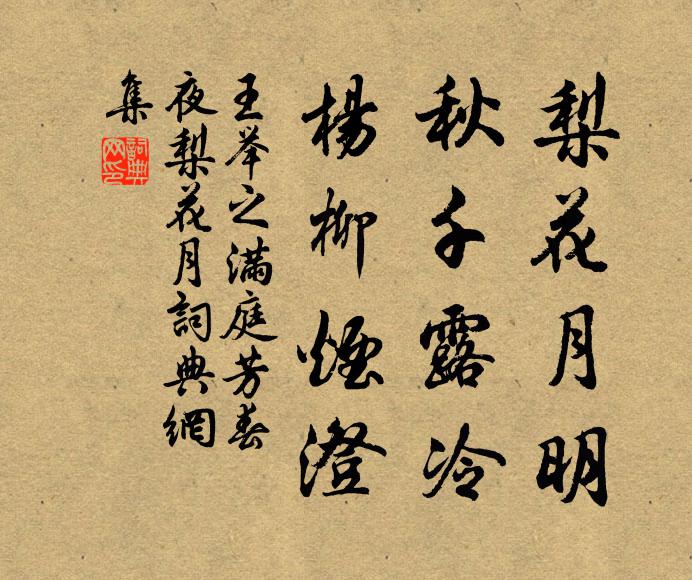 梨花月明
秋千露冷
楊柳煙澄
王举之满庭芳春
夜梨花月詞典網
集
詞典網印